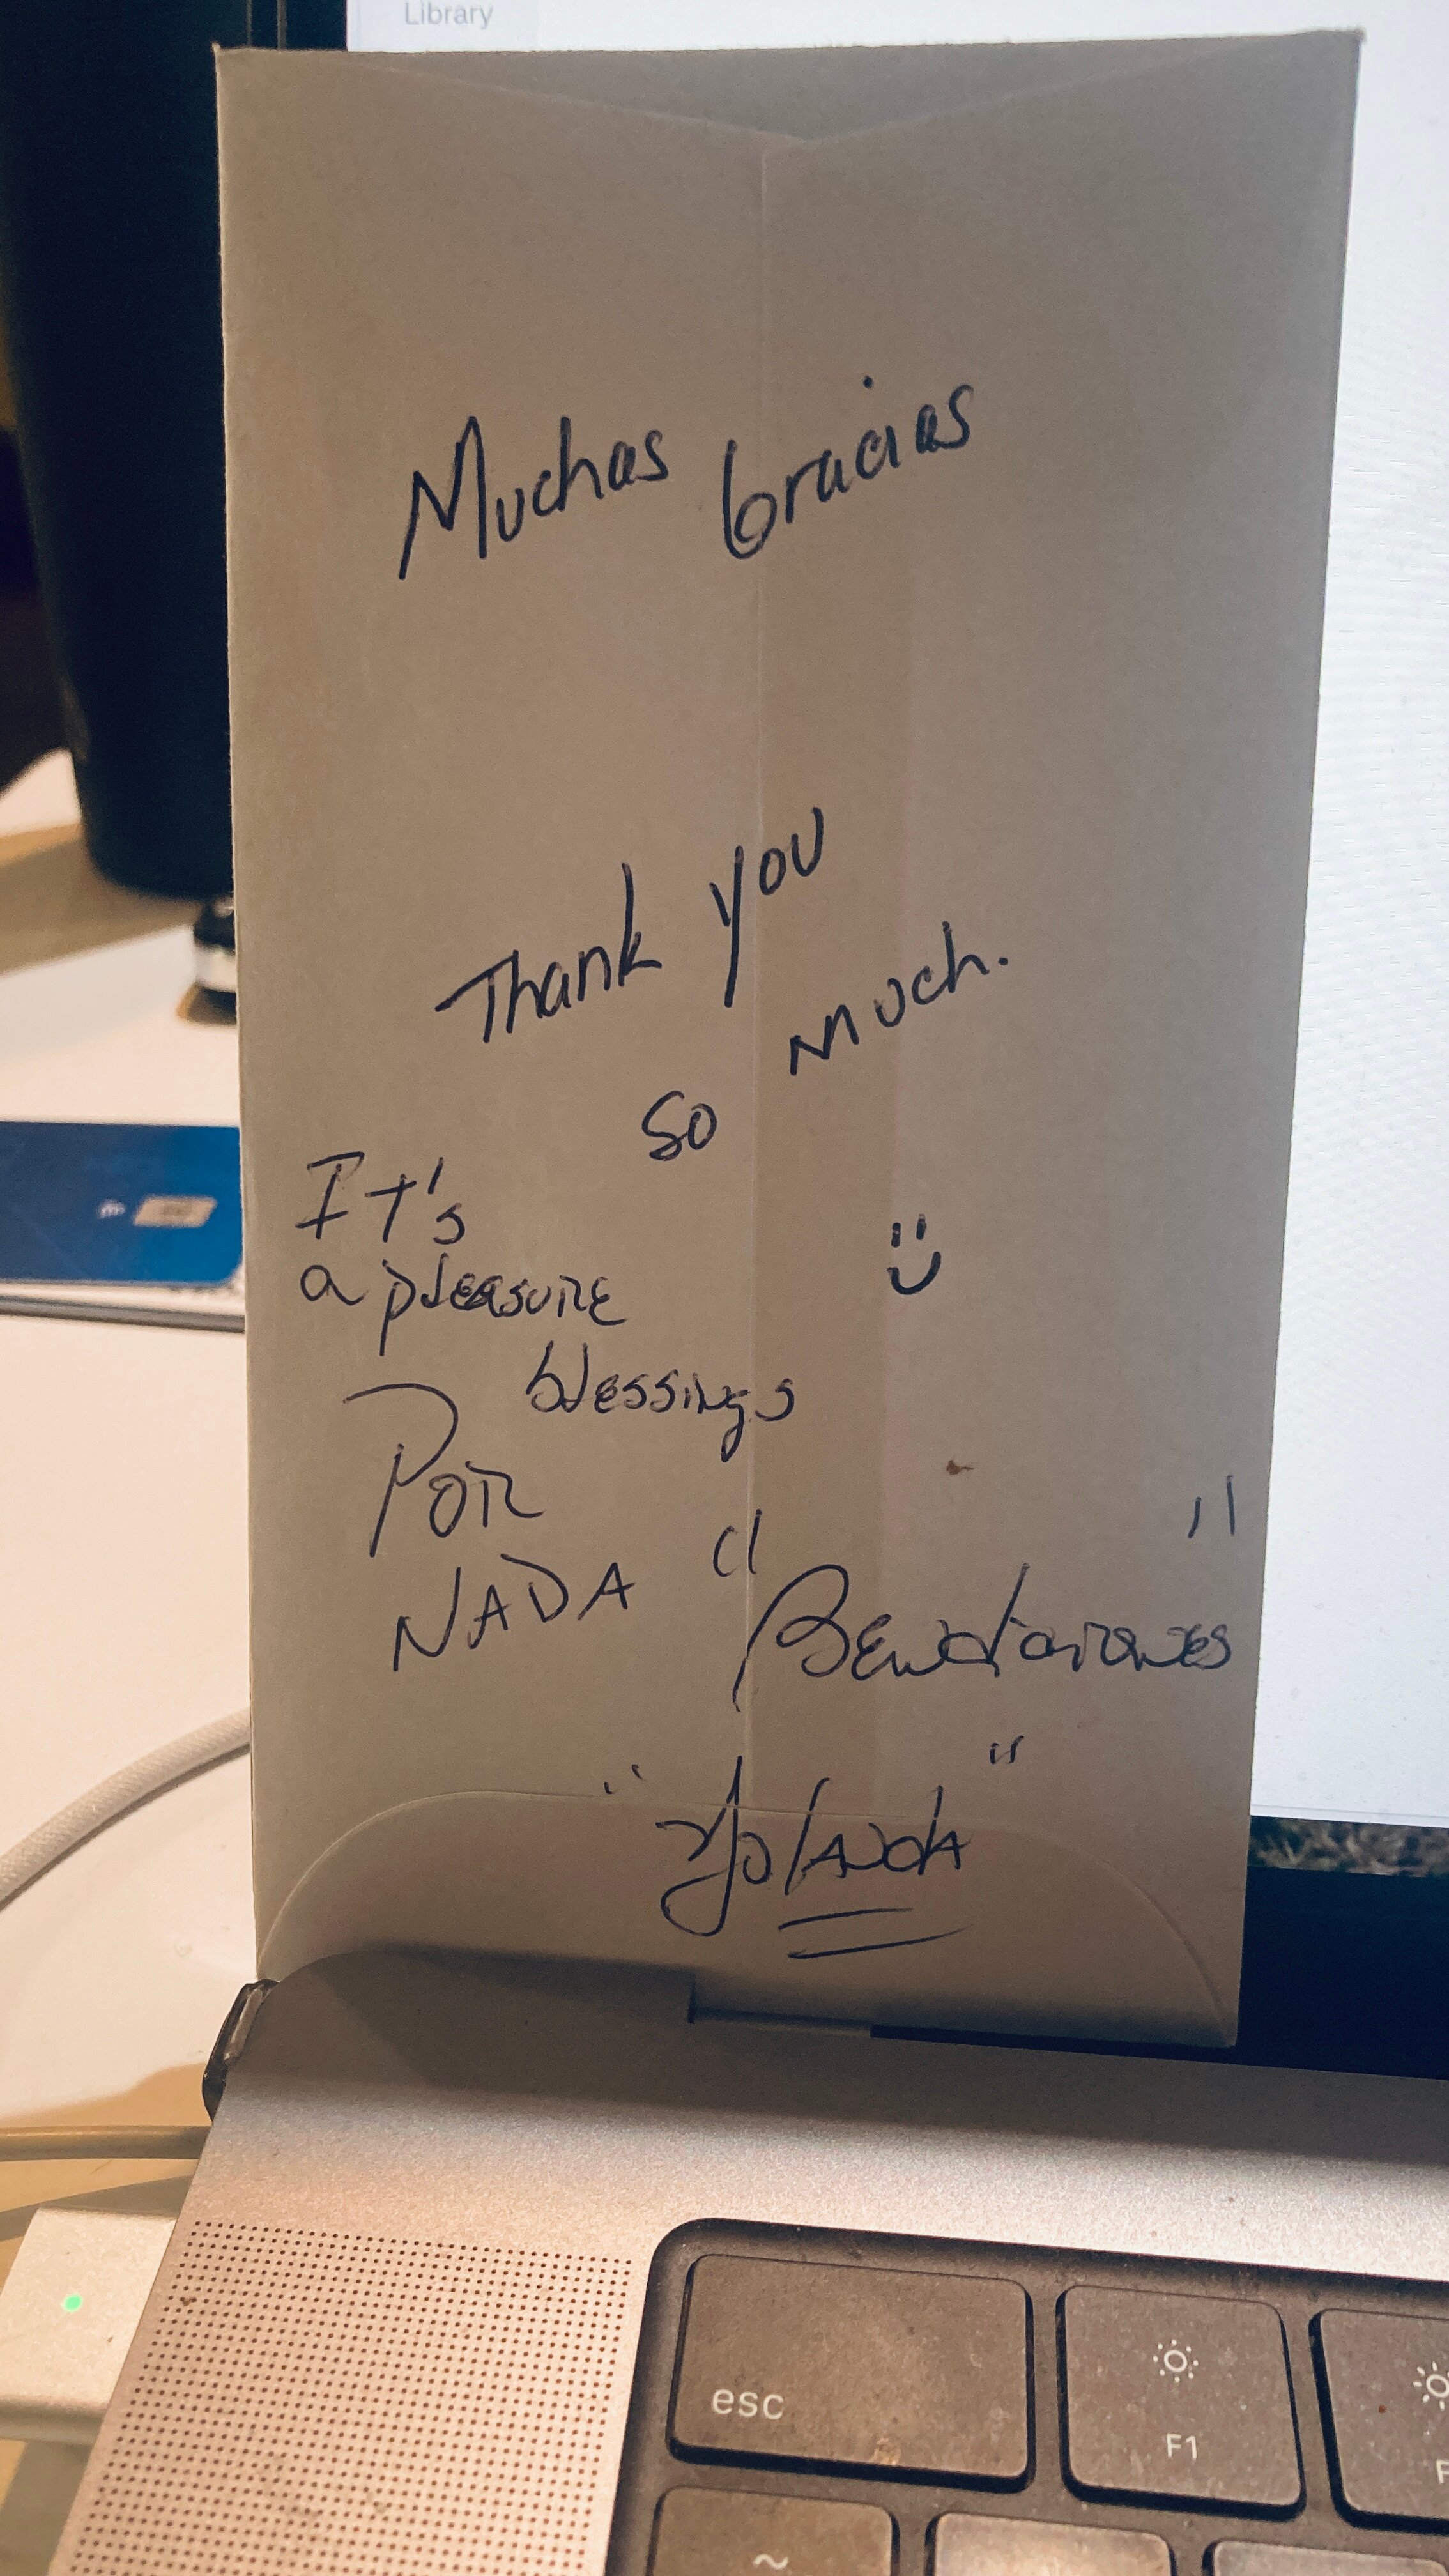 Library
Muchas Gracias
Thank you
so much.
It's
a pleasure
blessings
POR
NADA
"Bendiciones"
"Yolanda"
esc
F1
F
~